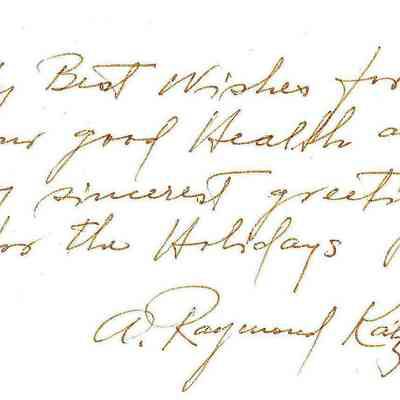 y Best Wishes for
our good Health a
y sincerest greeti
for the Holidays
A. Raymond Katz